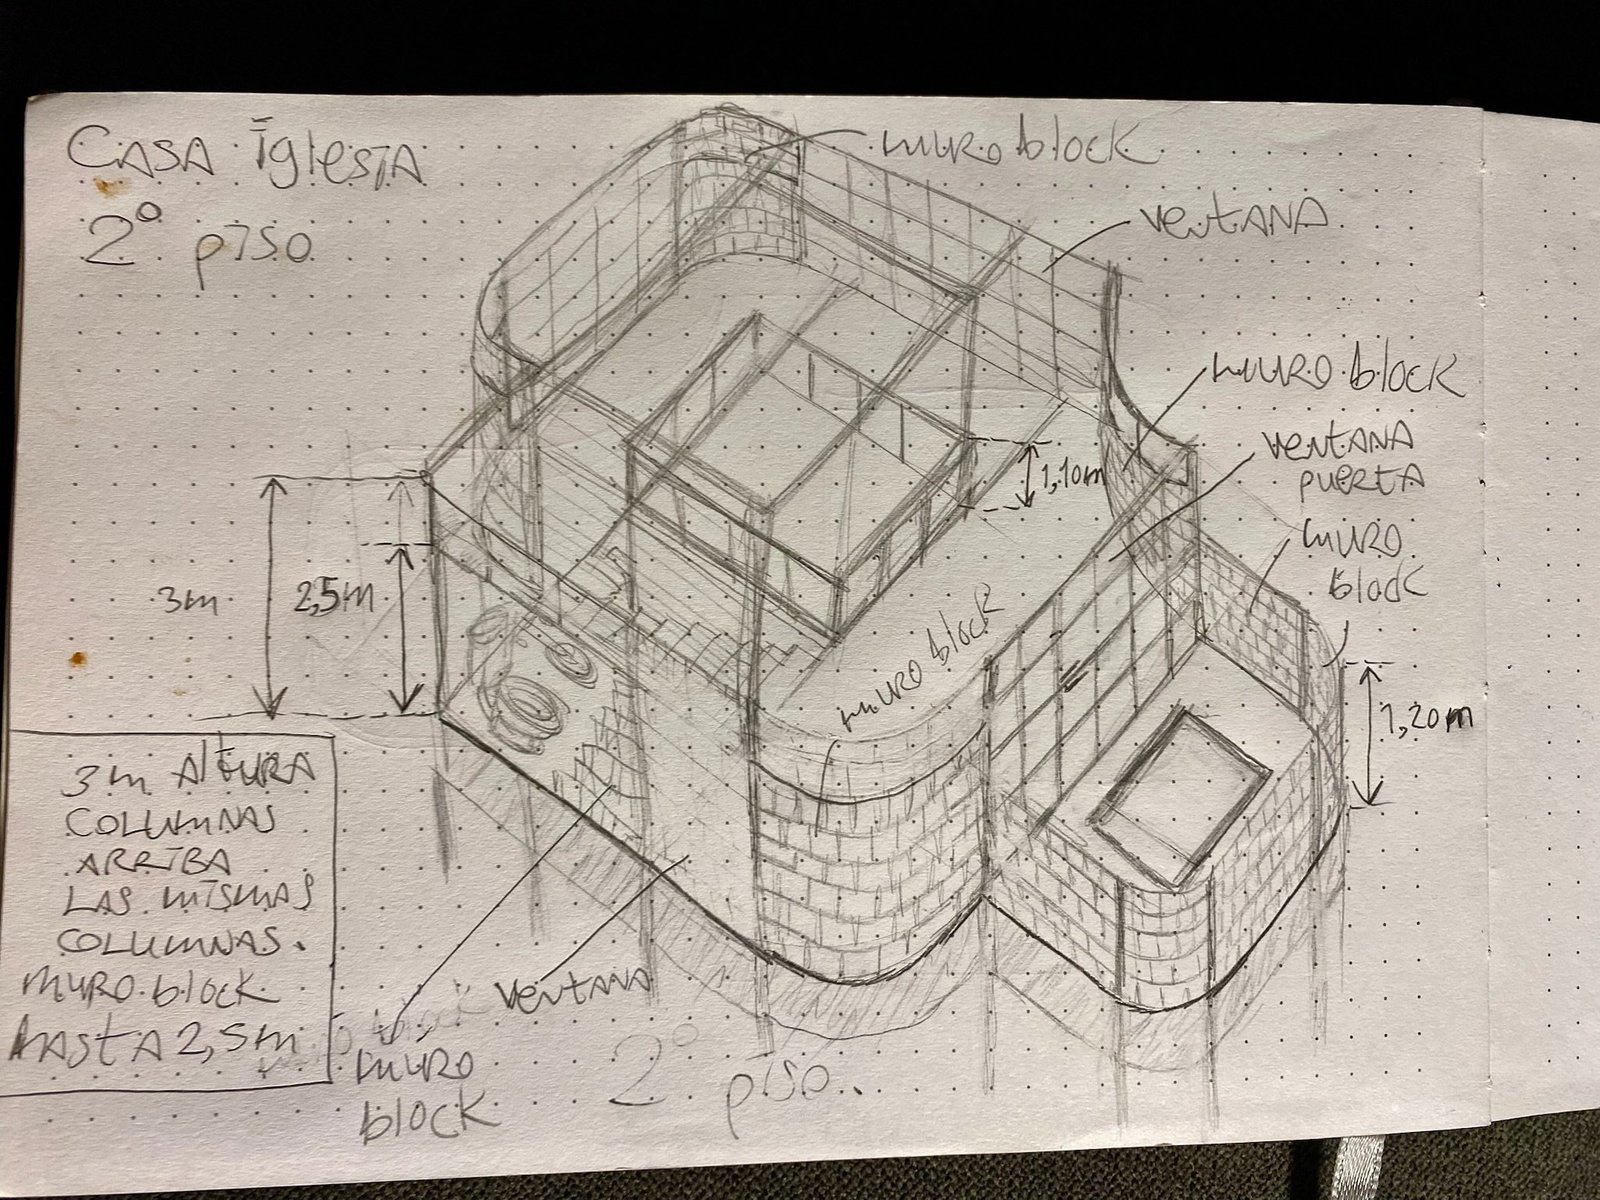 CASA IglesIA
2° pIso
muro block
ventANA
muro block
ventANA
puertA
muro
block
1,10m
3m
2,5m
muro block
1,20m
3m AltURA
COLUMNAS
ARRIBA
LAS MISMAS
COLUMNAS.
muro block
hastA 2,5m
ventANA
muro
block
2°
pIso..